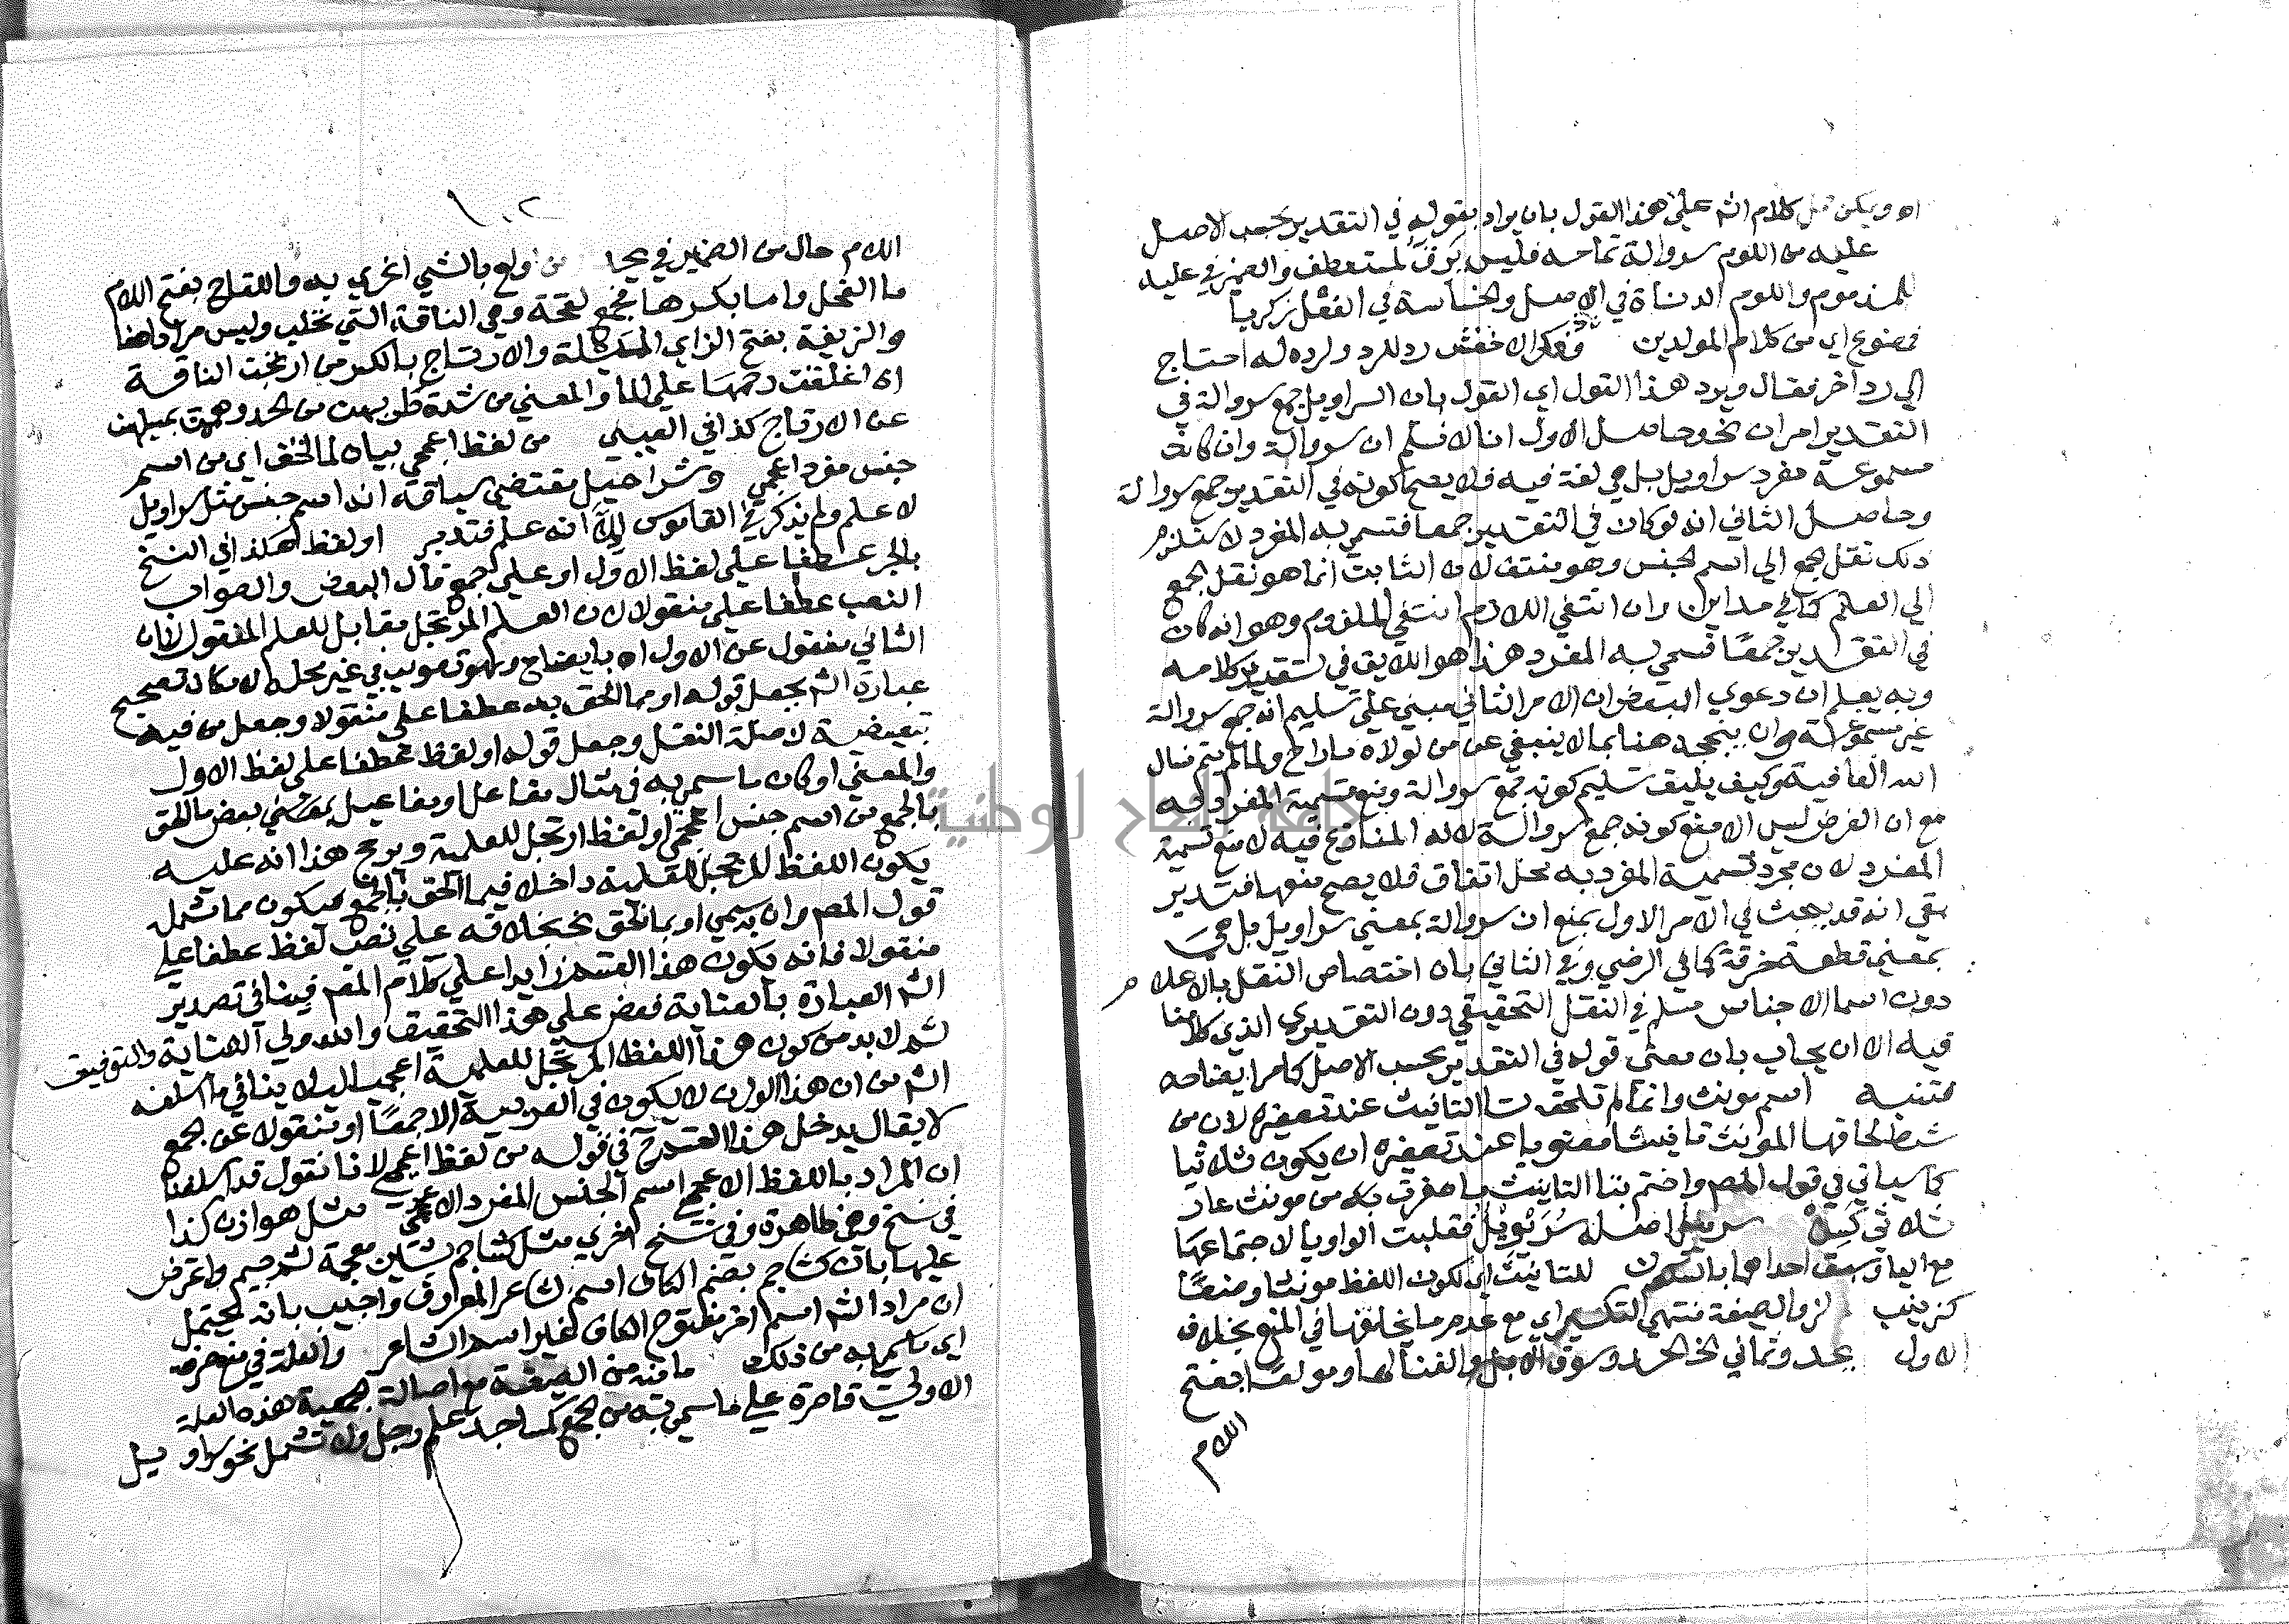 اه ويمكن حمل كلام الش على هذا القول بان يراد بقوله في التقدير بحسب الاصل
عليه من اللوم سروالة تمامه فليس يرق لمستعطف والضمير في عليه
للمذموم واللوم الدناة في الاصل والخساسة في الفعل زكريا
مصنوع اي من كلام المولدين الاخفش رد للرد ولرده له احتاج
الي رد اخر فقال ويرد هذا القول اي القول بان السراويل جمع سروالة في
التقدير امران نحو وحاصل الاول انا لا نسلم ان سروالة وان كانت
مسموعة مفرد سراويل بل هي لغة فيه فلا يصح كونه في التقدير جمع سروالة
وحاصل الثاني انه لو كان في التقدير جمعا فسمي به المفرد لاستلزم
ذلك نقل الجمع الي اسم الجنس وهو منتف لان الثابت انما هو نقل الجمع
الي العلم كما في مداين وان انتفي اللازم انتفي الملزوم وهو انه كان
في التقدير جمعا فسمي به المفرد هذا هو اللايق في تقدير كلامه
وبه يعلم ان دعوي البعض ان الامر الثاني مبني علي تسليم انه جمع سروالة
غير مسموعة وان بتجحه هنا بما لا ينبغي عن من لولاه ما راح ولما لم يتم نسال
الله العافية وكيف يليق تسليم كونه جمع سروالة ومنع تسمية المفرد به
مع ان الغرض ليس الا منع كونه جمع سروالة لانه المتنازع فيه لا منع تسمية
المفرد لان مجرد تسمية المفرد به محل اتفاق فلا يصح منعها فتدبر
بقي انه قد يبحث في الامر الاول بمنع ان سروالة بمعني سراويل بل هي
بمعني قطعة خرقة كما في الرضي وفي الثاني بان اختصاص النقل بالاعلام
دون اسما الاجناس مسلم في النقل التحقيقي دون التقديري الذي كلامنا
فيه الا ان يجاب بان معني قوله في التقدير بحسب الاصل كما مر ايضاحه
فتنبه اسم مونث وانما لم تلحقه تا التانيث عند تصغيره لان من
شرط لحاقها المونث تانيثا معنويا عند تصغيره ان يكون ثلاثيا
كما سياتي في قول المص واختم بتا التانيث ما صغرت من مونث عار
ثلاثي كسن سريل اصله سريويل فقلبت الواو يا لاجتماعها
مع اليا وسبق احداهما بالسكون للتانيث اي لكون اللفظ مونثا وضعا
كزينب لزوال صيغة منتهي التكسير اي مع عدم ما يخلفها في المنع بخلاف
الاول يحدو ثماني الخ الحدو سوق الابل والغنا لها ومولعا بفتح
اللام
١٠٢
اللام حال من الضمير في يحدو من اولع بالشي اغري به واللقاح بفتح اللام
ما الفحل واما بكسرها فجمع لقحة وهي الناقة التي تحلب وليس مرادا هنا
والزيغة بفتح الزاي الميلة والارتاج بالكسر من ارتجت الناقة
اذا اغلقت رحمها علي الما والمعني من شدة طربهن من الحدو هممن بميلهن
عن الارتاج كذا في العيني من لفظ اعجمي بيان لما الحق اي من اسم
جنس مفرد اعجمي وشراحيل مقتضي سياقه انه اسم جنس مثل سراويل
لا علم ولم يذكر في القاموس الا انه علم فتدبر او لفظ هكذا في النسخ
بالجر عطفا علي لفظ الاول او علي جمع قال البعض والصواب
النصب عطفا علي منقولا لان العلم المرتجل مقابل للعلم المنقول لان
الثاني منقول عن الاول اه بايضاح وهو تصويب في غير محله لامكان تصحيح
عبارة الش بجعل قوله او مما الحق به عطفا علي منقولا وجعل من فيه
تبعيضية لا صلة النقل وجعل قوله او لفظ عطفا علي لفظ الاول
والمعني او كان ما سمي به في مثال مفاعل او مفاعيل بمعني بعض ما الحق
بالجمع من اسم جنس اعجمي او لفظ ارتجل للعلمية ويرجح هذا انه عليه
يكون اللفظ المرتجل للعلمية داخلا فيما الحق بالجمع فيكون مما شمله
قول المص وان به سمي او بما لحق نخ بخلافه علي نصب لفظ عطفا علي
منقولا فانه يكون هذا القسم زايدا علي كلام المص فينافي تصدير
الش العبارة بالعناية فعض علي هذا التحقيق والله ولي العناية والتوفيق
ثم لا بد من كون هذا اللفظ المرتجل للعلمية اعجميا ليلا ينافي ما اسلفه
الش من ان هذا الوزن لا يكون في العربية الا جمعا او منقولا عن جمع
لا يقال يدخل هذا القسم في قوله من لفظ اعجمي لانا نقول قد اسلفنا
ان المراد باللفظ الاعجمي اسم الجنس المفرد الاعجمي مثل هوازن كذا
في نسخ وهي ظاهرة وفي نسخ اخري مثل كشاجم بشين معجمة ثم جيم واعترض
عليها بان كشاجم بضم الكاف اسم شاعر المعروف واجيب بانه يحتمل
ان مراد الش اسم اخر مفتوح الكاف لغير اسم الشاعر والعلة في منع صرفه
اي ما سمي به من ذلك ما فيه من الصيغة مع اصالة الجمعية هذه العلة
الاولي قاصرة علي ما سمي به من الجمع كمساجد علم رجل ولا تشمل نحو سراويل